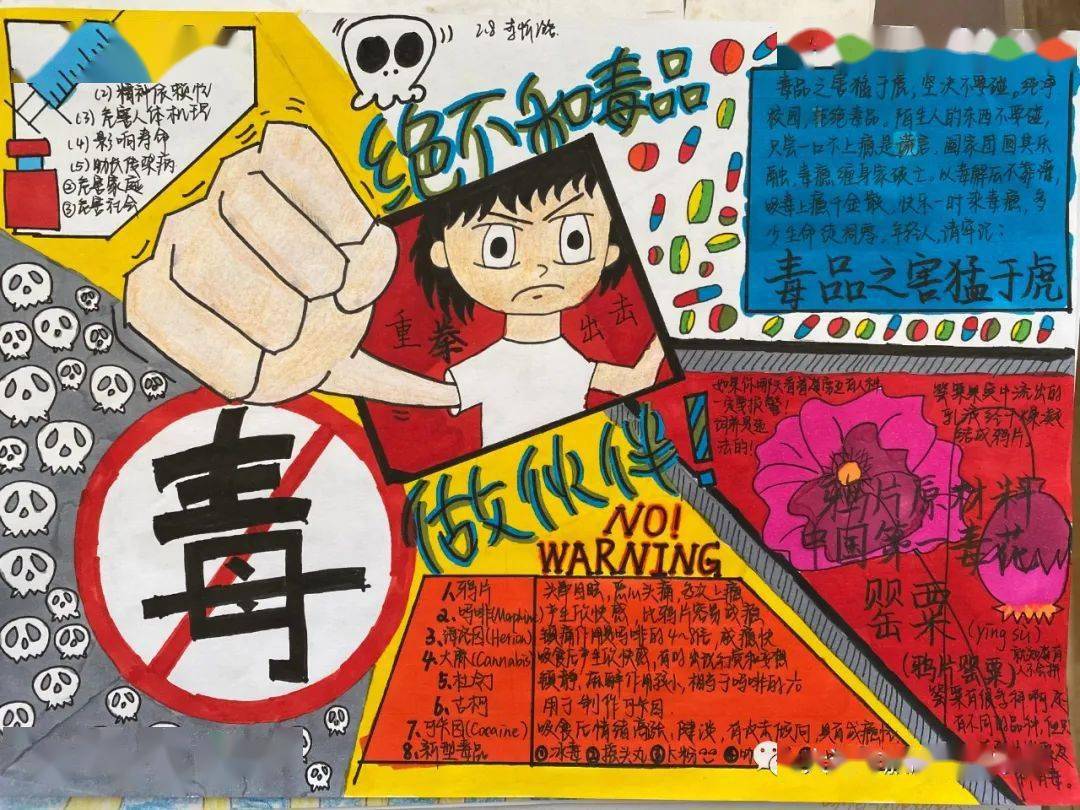 2.8
(2)精神依赖性
(3)危害人体机理
(4)影响寿命
(5)助长传染病
②危害家庭
③危害社会
绝不和毒品
做伙伴!
重拳 出击
毒
毒品之害猛于虎,坚决不要碰。纯净
校园,拒绝毒品。陌生人的东西不要碰,
只尝一口不上瘾是谎言。阖家团圆其乐
融,毒瘾缠身家破亡。以毒解忧不靠谱,
吸毒上瘾千金散。快乐一时求毒瘾,多
少生命使凋零。年轻人,请牢记:
毒品之害猛于虎
一定要报警!
饲养是违
法的!
罂粟果实中流出的
结成鸦片。
鸦片原材料
中国第一毒花
罂粟
(yīng sù)
(鸦片罂粟)
罂粟有很多学科啊,还
有不同的品种,但
NO!
WARNING
1.鸦片 头晕目眩,恶心头痛,多次上瘾
2.吗啡(Morphine) 产生欣快感,比鸦片容易成瘾
3.海洛因(Heroin) 镇痛作用是吗啡的4~8倍,成瘾快
4.大麻(Cannabis) 吸食后产生欣快感,有时出现幻觉和妄想
5.杜冷丁 镇静、麻醉作用较小,相当于吗啡的
6.古柯 用于制作可卡因
7.可卡因(Cocaine) 吸食后情绪高涨、健谈,
8.新型毒品 ①冰毒②摇头丸③K粉